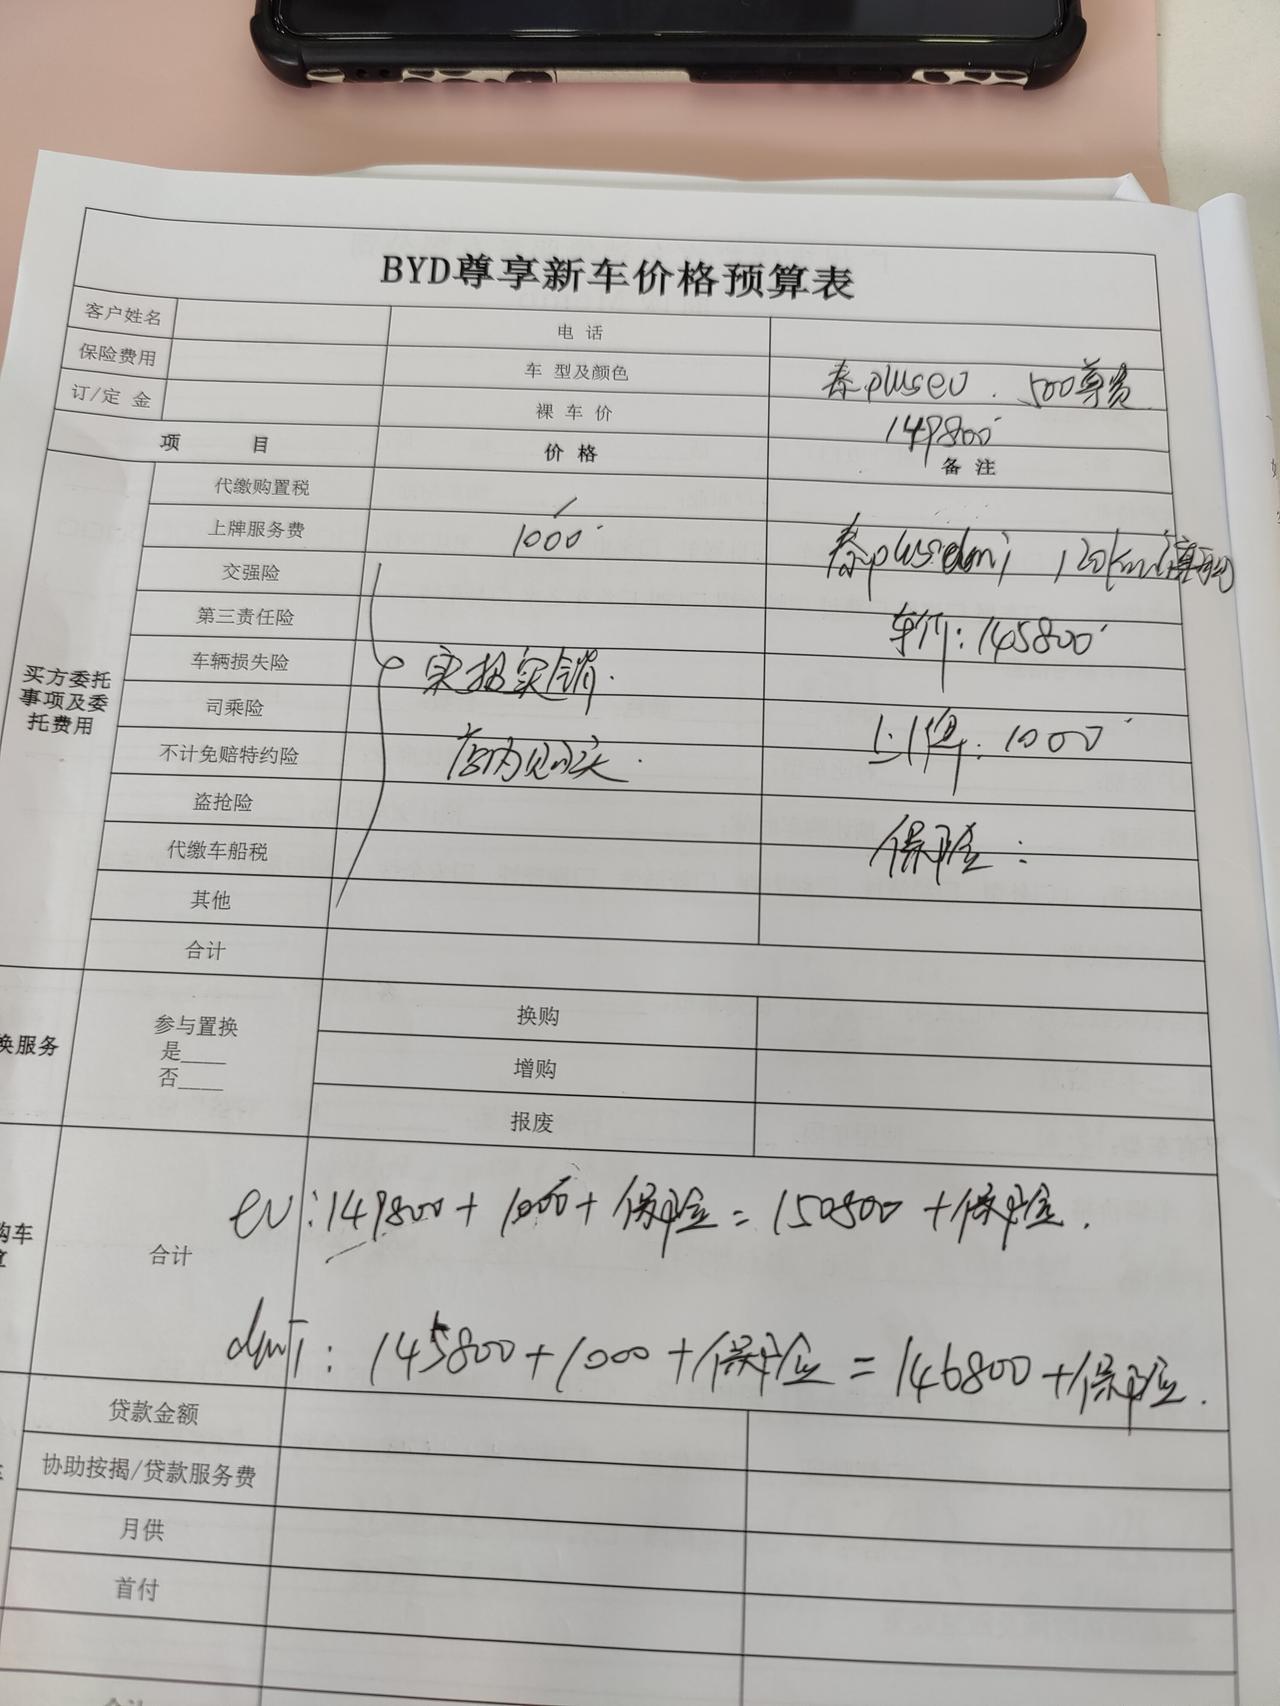 BYD尊享新车价格预算表
客户姓名 电 话
保险费用 车 型及颜色 秦plusev 500尊贵
订/定 金 裸 车 价 149800
项 目 价 格 备 注
买方委托事项及委托费用
代缴购置税 /
上牌服务费 1000 秦plusdmi 120km
交强险
第三责任险 车价：145800
车辆损失险 实报实销.
司乘险 上牌：1000
不计免赔特约险 店内购买.
盗抢险
代缴车船税 保险：
其他
合计
换服务 参与置换 换购
是____ 增购
否____ 报废
购车
合计
ev：149800+1000+保险=150800+保险.
dmi：145800+1000+保险=146800+保险.
贷款金额
协助按揭/贷款服务费
月供
首付
合计